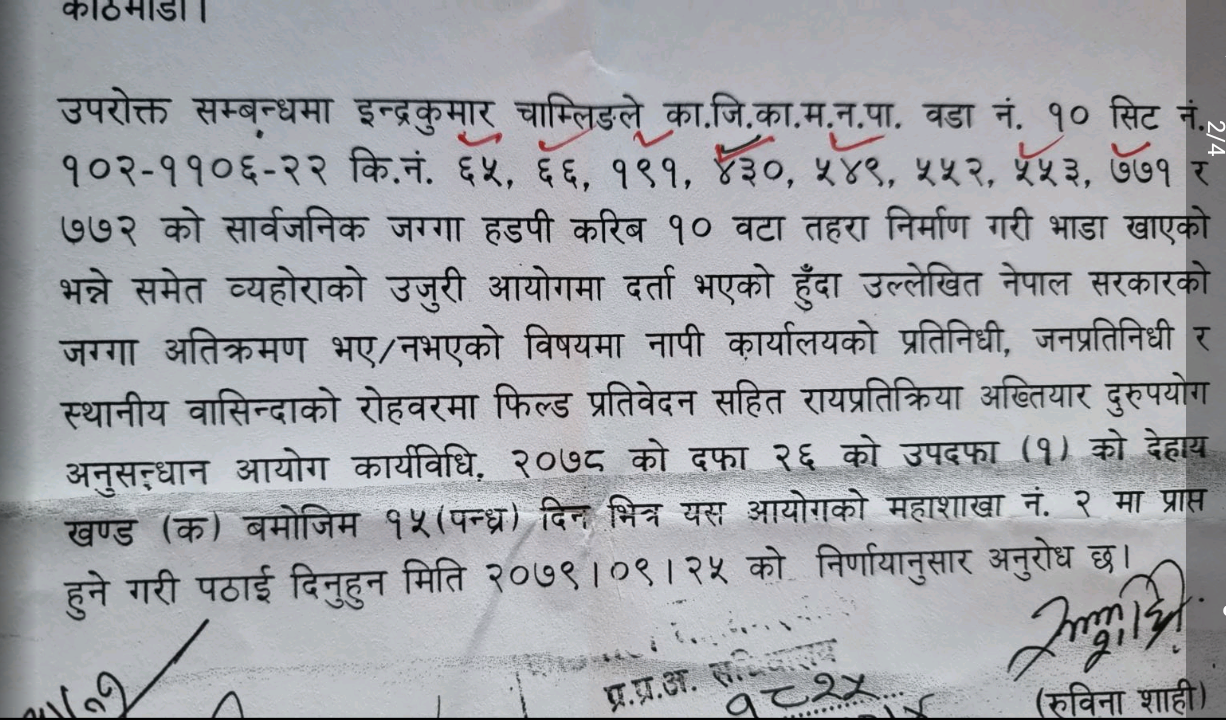 काठमाडौं ।
उपरोक्त सम्बन्धमा इन्द्रकुमार चाम्लिङले का.जि.का.म.न.पा. वडा नं. १० सिट नं.
१०२-११०६-२२ कि.नं. ६५, ६६, १९१, ४३०, ५४९, ५५२, ५५३, ७७१ र
७७२ को सार्वजनिक जग्गा हडपी करिब १० वटा तहरा निर्माण गरी भाडा खाएको
भन्ने समेत व्यहोराको उजुरी आयोगमा दर्ता भएको हुँदा उल्लेखित नेपाल सरकारको
जग्गा अतिक्रमण भए/नभएको विषयमा नापी कार्यालयको प्रतिनिधी, जनप्रतिनिधी र
स्थानीय वासिन्दाको रोहवरमा फिल्ड प्रतिवेदन सहित रायप्रतिक्रिया अख्तियार दुरुपयोग
अनुसन्धान आयोग कार्यविधि, २०७८ को दफा २६ को उपदफा (१) को देहाय
खण्ड (क) बमोजिम १५(पन्ध्र) दिन भित्र यस आयोगको महाशाखा नं. २ मा प्राप्त
हुने गरी पठाई दिनुहुन मिति २०७९।०९।२५ को निर्णयानुसार अनुरोध छ।
प्र.प्र.अ. सचिवालय
१८२५
(रुविना शाही)
2/4